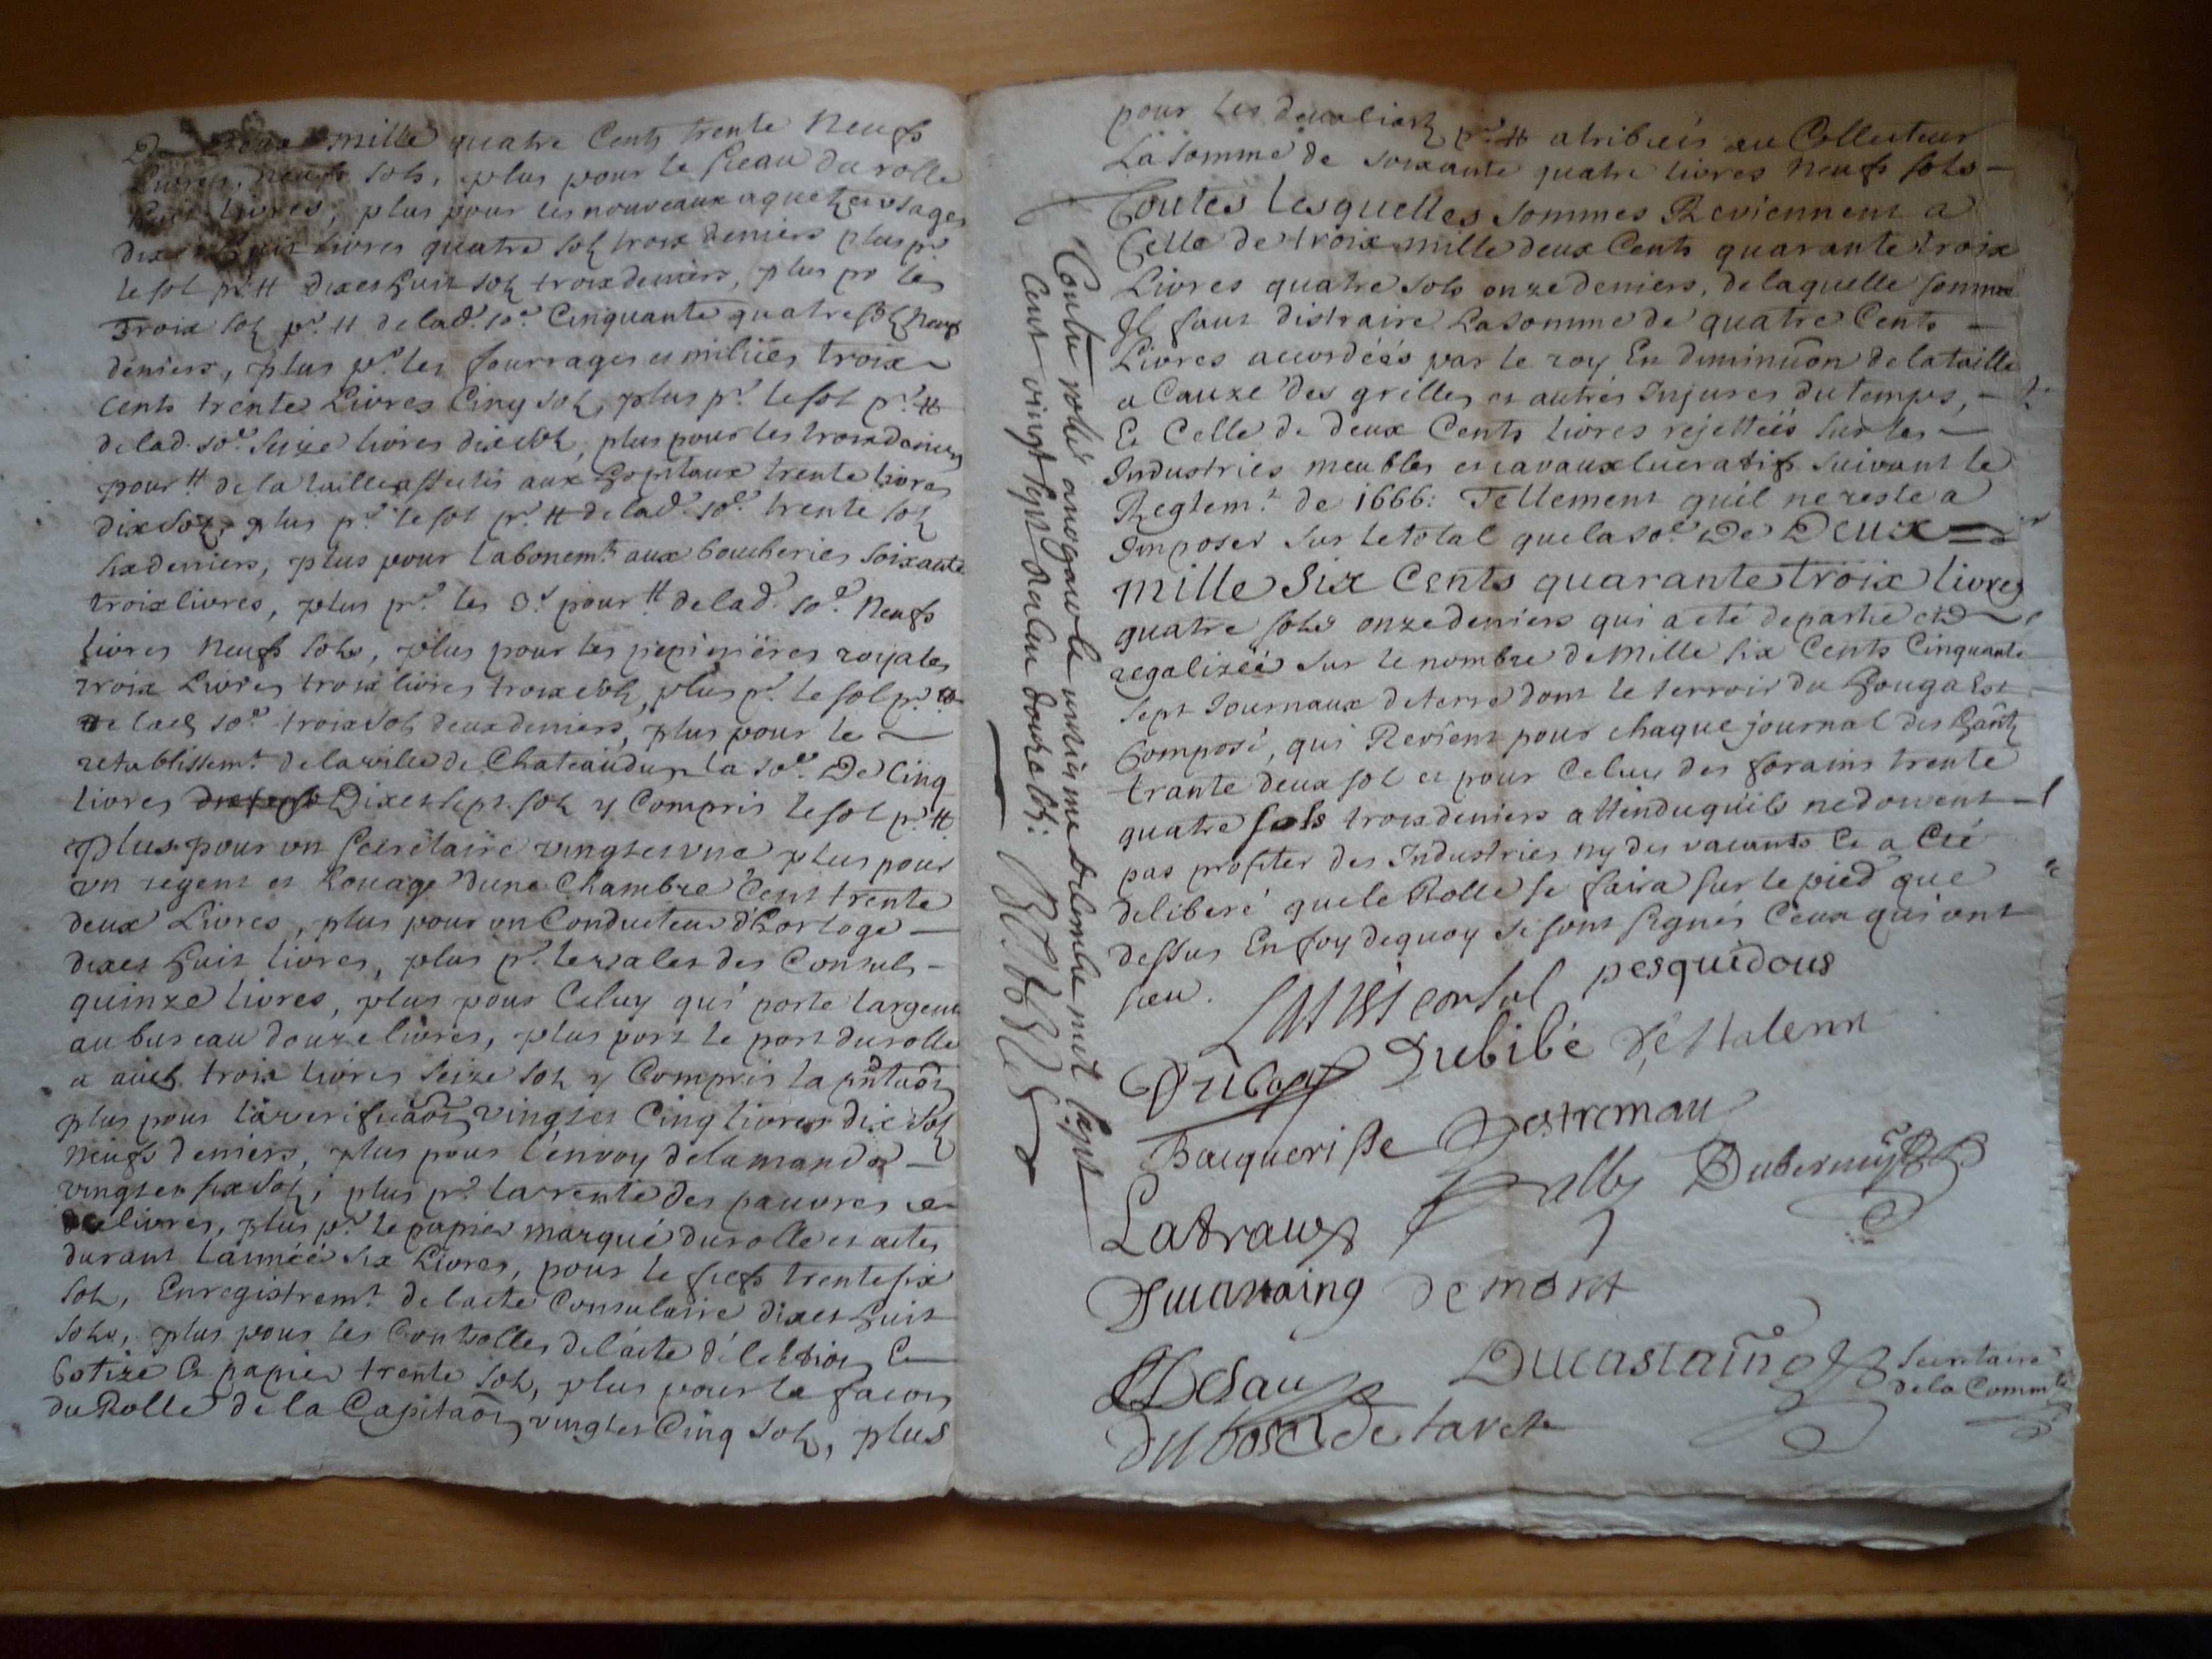 De Deux mille quatre Cents trente Neufs
Livres, neufs sols, plus pour le sceau du rolle
huit livres, plus pour les nouveaux aquets et usages
dix et huit livres quatre sols troix deniers plus pr
le sol pr. ₶ dix et huit sols troix deniers, plus pr les
troix sols pr. ₶ de lad. so.e Cinquante quatre sols neufs
deniers, plus pr. les fourrages et milices troix
cents trente Livres Cinq sols, plus pr. le sol pr. ₶
de lad. so.e Seize livres dix sols, plus pour les troix deniers
pour ₶ de la taille affectés aux hopitaux trente livres
dix sols, plus pr. le sol pr. ₶ de lad. so.e trente sols
six deniers, plus pour labonem.t aux boucheries soixante
troix livres, plus pr. les 3.s pour ₶ de lad. so.e Neufs
livres Neufs sols, plus pour les pepinieres roÿales
troix Livres troix livres troix sols, plus pr. le sol pr. ₶
de lad. so.e troix sols deux deniers, plus pour le
retablissem.t de la ville de Chateaudun la so.e De Cinq
livres Dix et sept sols y Compris le sol pr. ₶
Plus pour un Secretaire vingt et une plus pour
un regent et Louage d'une Chambre Cent trente
deux Livres, plus pour un Conducteur d'horloge
dix et huit livres, plus pr. les gales des Consuls
quinze livres, plus pour Celuy qui porte largent
au bureau douze livres, plus port le port du rolle
a auch troix livres Seize sols y Compris la pntaõn
plus pour la verificaõn vingt et Cinq livres dix sols
Neufs deniers, plus pour l'envoy de la mande
vingt et six sols, plus pr. la rente des pauvres
livres, plus pr. le papier marqué du rolle et actes
durant lannéé six Livres, pour le fiefs trente six
sols, Enregistrem.t de lacte Consulaire dix et huit
sols, plus pour les Controlles de l'acte d'élection
Cotize Et papier trente sols, plus pour la facon
du Rolle de la Capitaõn vingt et Cinq sols, plus
pour les deniers pr. ₶ atribués au Collecteur
La somme de soixante quatre livres Neufs sols
Toutes Lesquelles sommes Reviennent a
Celle de troix mille deux Cents quarante troix
Livres quatre sols onze deniers, de laquelle somme
Il faut distraire La somme de quatre Cents
Livres accordéés par le roy En diminuõn de la taille
a Cauze des grilles et autres Injures du temps,
Et Celle de deux Cents livres rejettéés sur les
Industries meubles et cavaux lucratifs suivant le
Reglem.t de 1666: Tellement quil ne reste a
Imposer sur le total que la so.e De Deux
mille Six Cents quarante troix livres
quatre sols onze deniers qui a eté departie et
regalizéé sur le nombre de Mille six Cents Cinquante
sept Journaux de terre dont le terroir du houga Est
Composé, qui Revient pour chaque journal des hãnts
trante deux sol et pour Celuy des forains trente
quatre sols troix deniers attendu quils ne doivent
pas profiter des Industries ny des vacants Et a Eté
deliberé que le Rolle se faira sur le pied que
dessus En foy dequoy se sont signés Ceux qui ont
sceu.
consul pesquidous
Dubibé
Bacquerisse Destremau
Dalby Dubernuy
Latraux
demont
Ducastaing Secretaire
de la Comm.te
Dubosc de taret
Controllé a nogaro le unsieme decembre mil sept
cent vingt sept